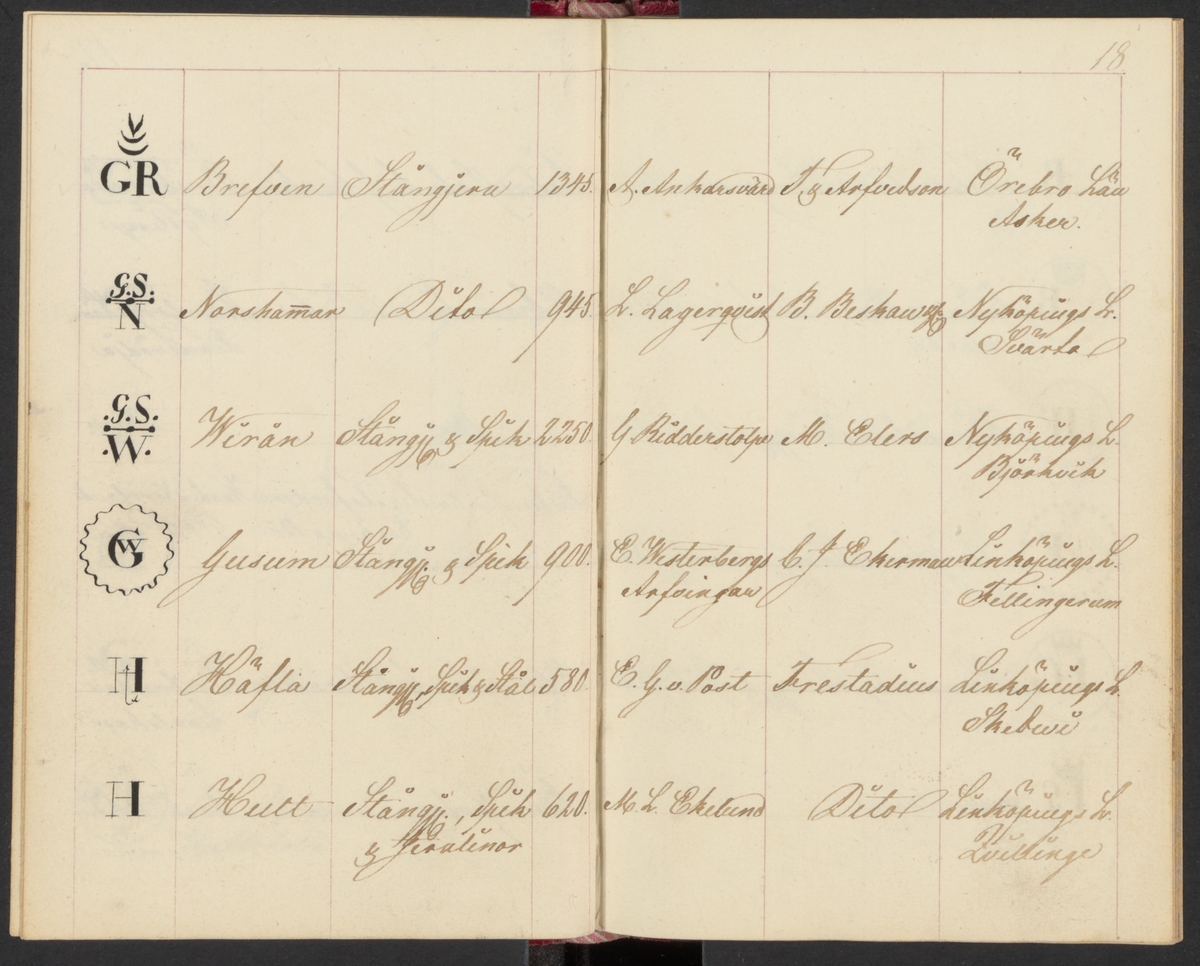 18
GR Brefven Stångjern 1345. A. Ankarsvärd T. & Arfvedson Örebro Län
Asker.
G.S.
N Norsham̄ar Dito 945. L. Lagerqvist B. Beskow Nyköpings L.
Svärta
.G.S.
.W. Wirån Stångj. & Spik 2250. G Ridderstolpe M. Elers Nyköpings L.
Björkvik
GW Gusum Stångj. & Spik 900. E. Westerbergs C. J. Ekerman Linköpings L.
Arfvingar Fellingerum
H Häfla Stångj., Spik & Stål 580. E. G. v. Post Frestadius Linköpings L.
Skedwi
H Hult Stångj., Spik 620. M. L. Ekelund Dito Linköpings L.
& Jernlinor Qvillinge